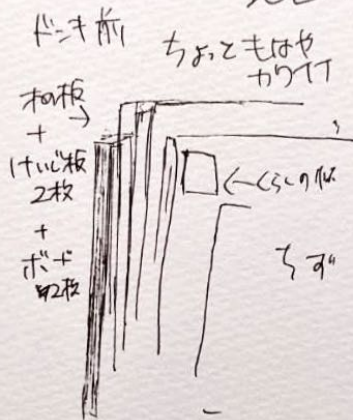 ドンキ前
ちょっともはや
カワイイ
木の板
+
けいじ板
2枚
+
ボード
2枚
くらしの
ちず